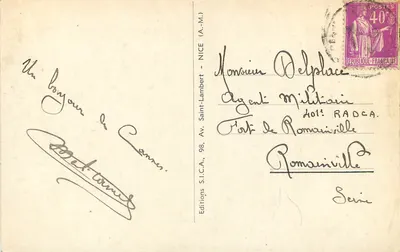 Un bonjour de Cannes.
Editions S.I.C.A., 98, Av. Saint-Lambert - NICE (A.-M.)
40c
POSTES
Monsieur Delplace
Agent Militaire
401e RADCA
Fort de Romainville
Romainville
Seine